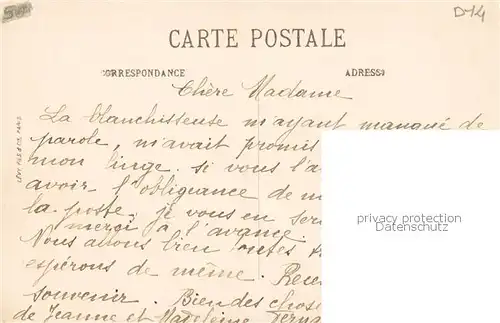 D14
CARTE POSTALE
CORRESPONDANCE
ADRESSE
Chère Madame
La blanchisseuse m'ayant manqué de
parole, m'avait promis
mon linge. si vous l'a
avoir l'obligeance de m
la poste, je vous en ser
merci à l'avance.
Nous allons bien toutes
espérons de même. Rece
souvenir. Bien des chos
de Jeanne et Madeleine
privacy protection
Datenschutz